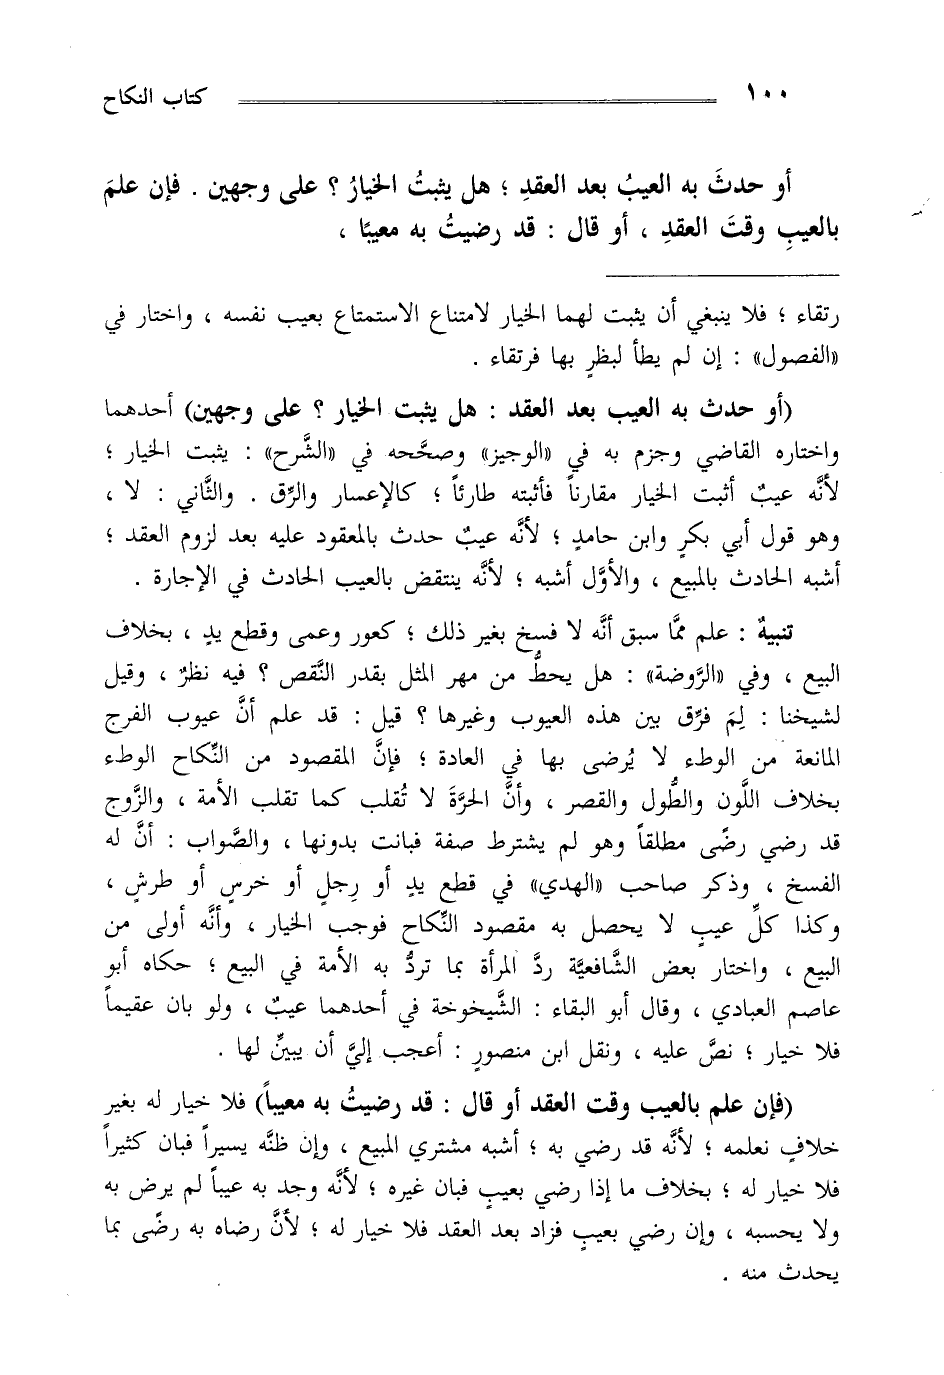 ١٠٠ كتاب النكاح
أو حدثَ به العيبُ بعد العقدِ ؛ هل يثبتُ الخيارُ ؟ على وجهين . فإن علمَ
بالعيبِ وقتَ العقدِ ، أو قال : قد رضيتُ به معيبًا ،
رتقاء ؛ فلا ينبغي أن يثبت لهما الخيار لامتناع الاستمتاع بعيب نفسه ، واختار في
«الفصول» : إن لم يطأ لبظرٍ بها فرتقاء .
(أو حدث به العيب بعد العقد : هل يثبت الخيار ؟ على وجهين) أحدهما
واختاره القاضي وجزم به في «الوجيز» وصحَّحه في «الشَّرح» : يثبت الخيار ؛
لأنَّه عيبٌ أثبت الخيار مقارناً فأثبته طارئاً ؛ كالإعسار والرِّق . والثَّاني : لا ،
وهو قول أبي بكرٍ وابن حامدٍ ؛ لأنَّه عيبٌ حدث بالمعقود عليه بعد لزوم العقد ؛
أشبه الحادث بالمبيع ، والأوَّل أشبه ؛ لأنَّه ينتقض بالعيب الحادث في الإجارة .
تنبيهٌ : علم ممَّا سبق أنَّه لا فسخ بغير ذلك ؛ كعور وعمى وقطع يدٍ ، بخلاف
البيع ، وفي «الرَّوضة» : هل يحطُّ من مهر المثل بقدر النَّقص ؟ فيه نظرٌ ، وقيل
لشيخنا : لِمَ فرِّق بين هذه العيوب وغيرها ؟ قيل : قد علم أنَّ عيوب الفرج
المانعة من الوطء لا يُرضى بها في العادة ؛ فإنَّ المقصود من النِّكاح الوطء
بخلاف اللَّون والطُّول والقصر ، وأنَّ الحرَّةَ لا تُقلب كما تقلب الأمة ، والزَّوج
قد رضي رضًى مطلقاً وهو لم يشترط صفة فبانت بدونها ، والصَّواب : أنَّ له
الفسخ ، وذكر صاحب «الهدي» في قطع يدٍ أو رِجلٍ أو خرسٍ أو طرشٍ ،
وكذا كلِّ عيبٍ لا يحصل به مقصود النِّكاح فوجب الخيار ، وأنَّه أولى من
البيع ، واختار بعض الشَّافعيَّة ردَّ المرأة بما تردُّ به الأمة في البيع ؛ حكاه أبو
عاصم العبادي ، وقال أبو البقاء : الشَّيخوخة في أحدهما عيبٌ ، ولو بان عقيماً
فلا خيار ؛ نصَّ عليه ، ونقل ابن منصورٍ : أعجب إليَّ أن يبينِّ لها .
(فإن علم بالعيب وقت العقد أو قال : قد رضيتُ به معيباً) فلا خيار له بغير
خلافٍ نعلمه ؛ لأنَّه قد رضي به ؛ أشبه مشتري المبيع ، وإن ظنَّه يسيراً فبان كثيراً
فلا خيار له ؛ بخلاف ما إذا رضي بعيبٍ فبان غيره ؛ لأنَّه وجد به عيباً لم يرض به
ولا يحسبه ، وإن رضي بعيبٍ فزاد بعد العقد فلا خيار له ؛ لأنَّ رضاه به رضًى بما
يحدث منه .